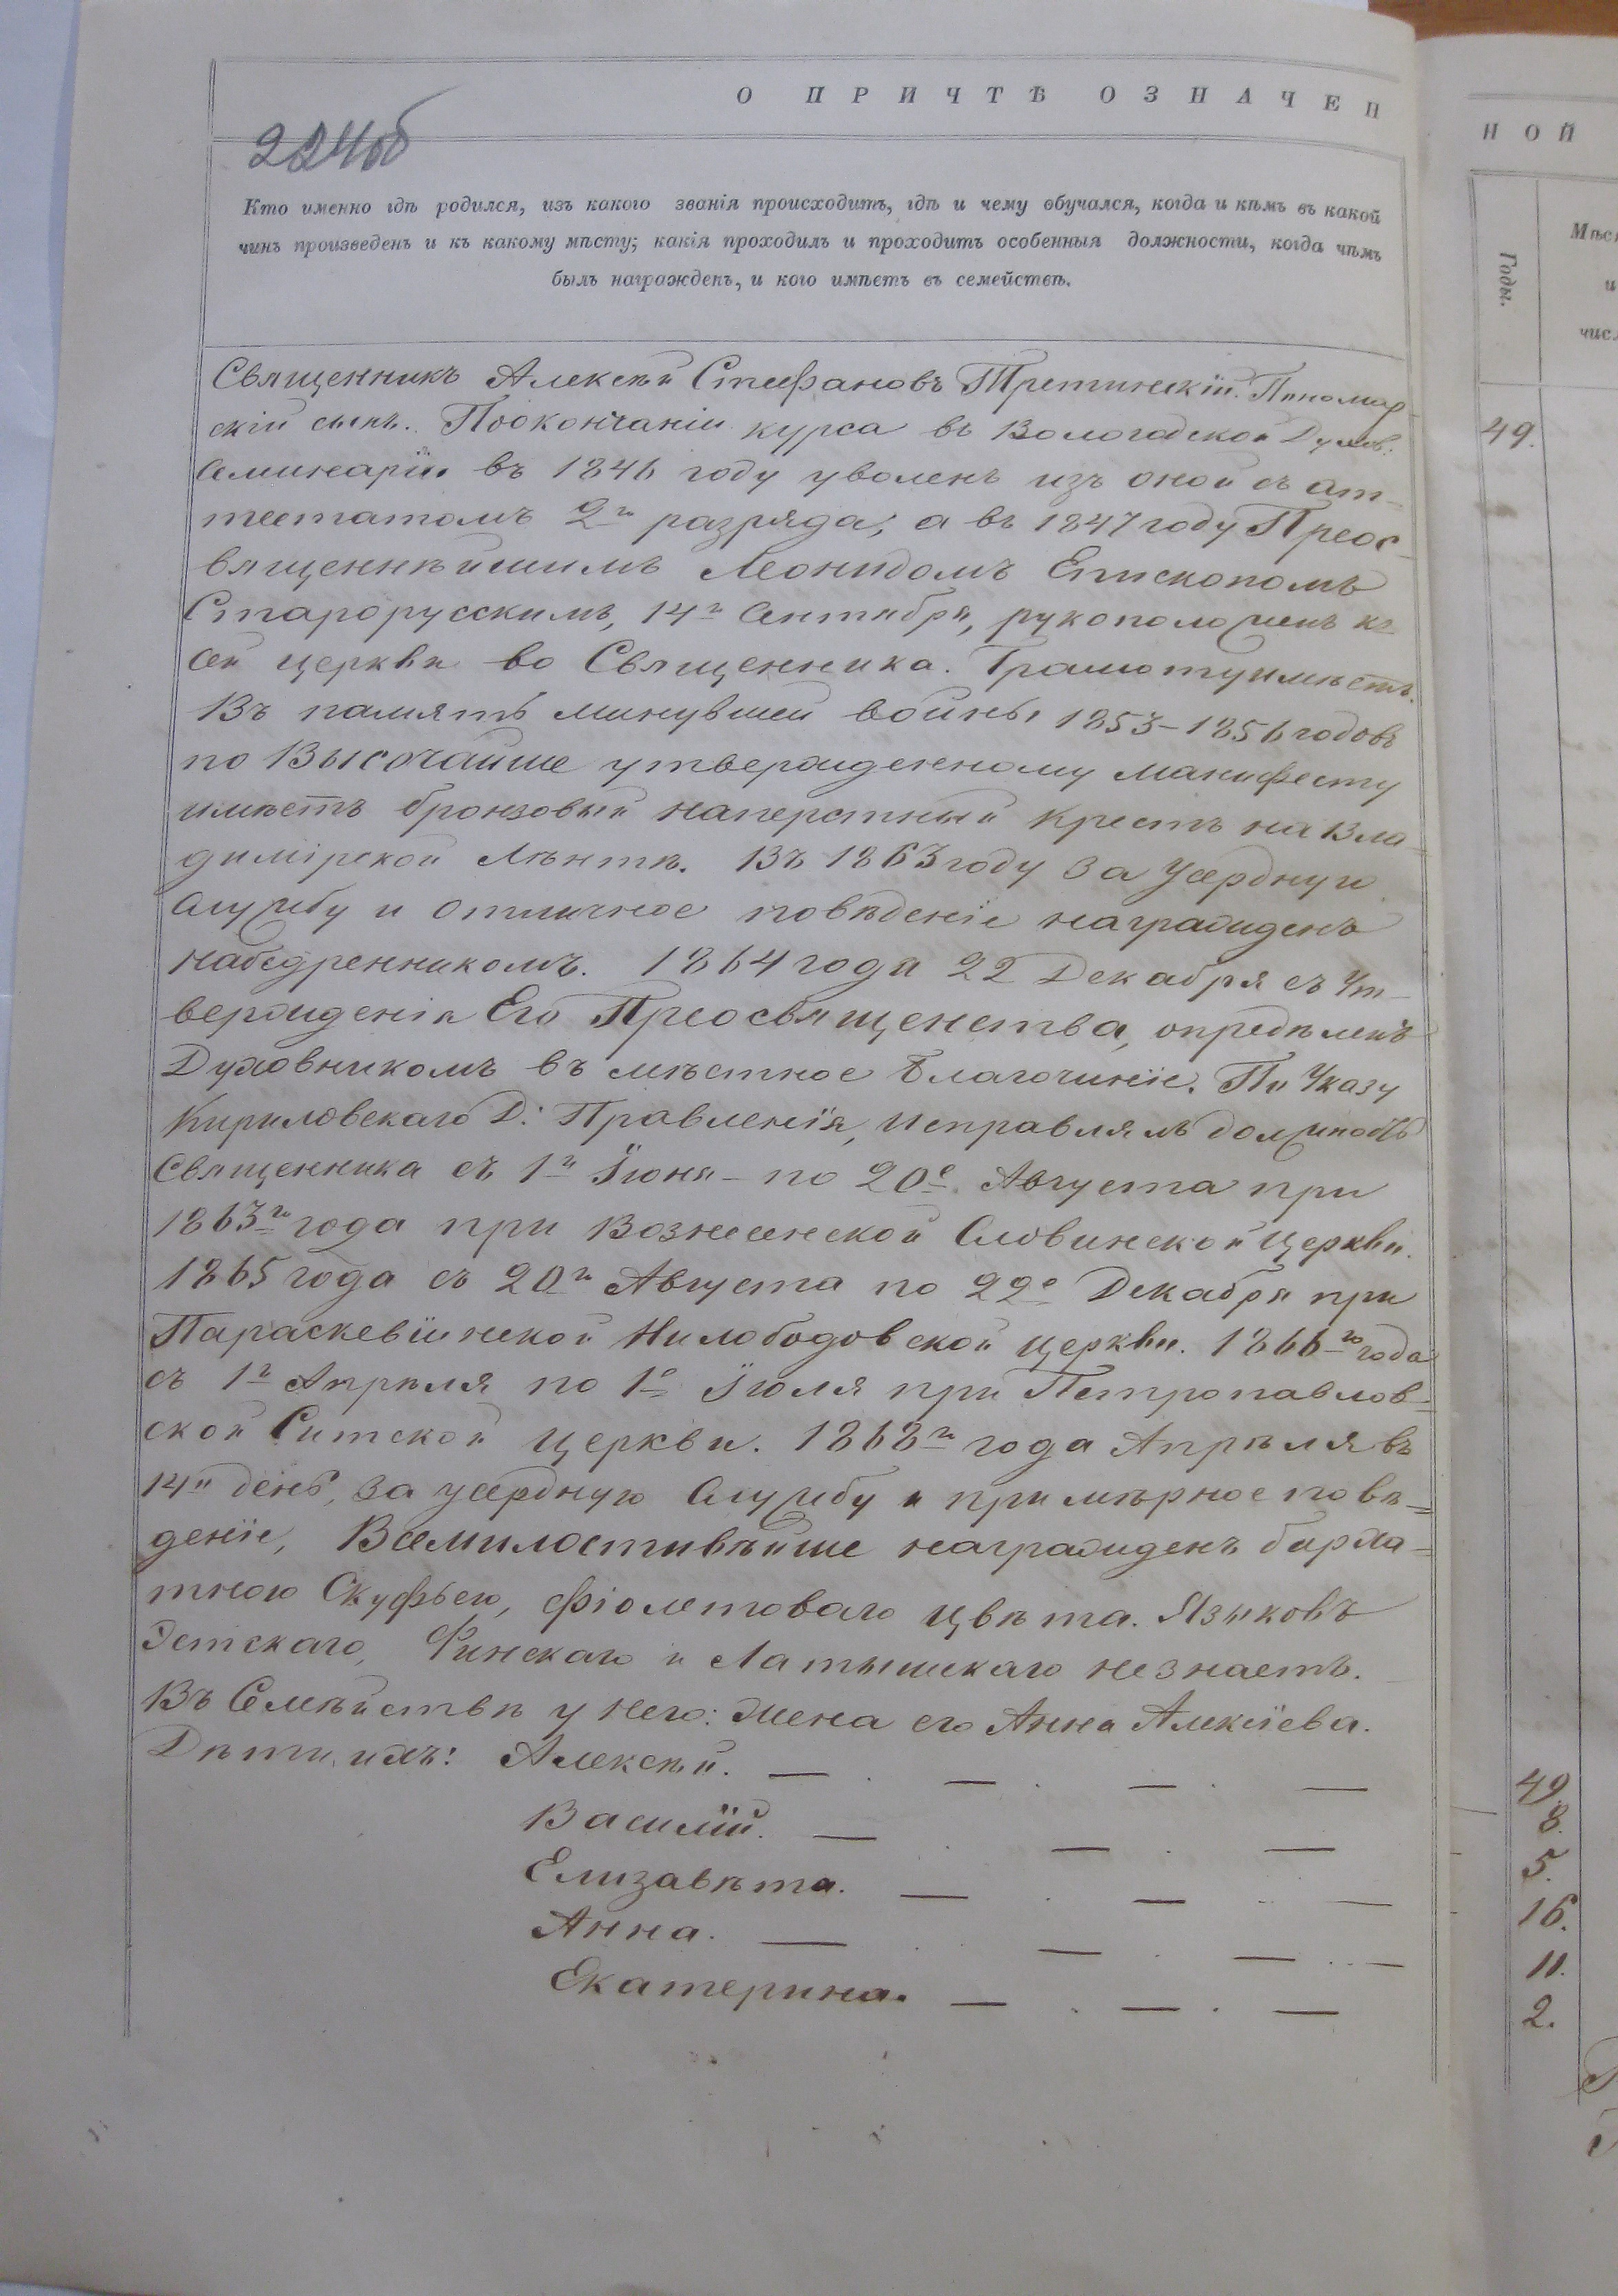 О ПРИЧТѢ ОЗНАЧЕН
НОЙ
224об
Кто именно гдѣ родился, изъ какого званія происходитъ, гдѣ и чему обучался, когда и кѣмъ въ какой
чинъ произведенъ и къ какому мѣсту; какія проходилъ и проходитъ особенныя должности, когда чѣмъ
былъ награжденъ, и кого имѣетъ въ семействѣ.
Годы.
Мѣс
и
чис
Священникъ Алексѣй Стефановъ Третинскій. Пономар-
скій сынъ. По окончаніи курса въ Вологодской Духов:
Семинаріи въ 1846 году уволенъ изъ оной съ ат-
тестатомъ 2го разряда; а въ 1847 году Преос-
вященнѣйшимъ Леонидомъ Епископомъ
Старорусскимъ, 14го Сентября, рукоположенъ къ
сей церкви во Священника. Грамоту имѣетъ.
Въ память минувшей войны 1853-1856 годовъ
по Высочайше утвержденному манифесту
имѣетъ бронзовый наперстный крестъ на Вла-
димірской лѣнтѣ. Въ 1863 году за усердную
службу и отличное повѣденіе награжденъ
набедренникомъ. 1864 года 22 Декабря съ Ут-
вержденія Его Преосвященства, опредѣленъ
Духовникомъ въ мѣстное Благочиніе. По Указу
Кириловскаго Д: Правленія, исправлялъ должность
Священника съ 1го Іюня - по 20е Августа при
1863го года при Вознесенской Словинской Церкви.
1865 года съ 20го Августа по 22е Декабря при
Параскевіинской Нилободовской церкви. 1866го года
съ 1го Апрѣля по 1е Іюля при Петропавлов-
ской Ситской церкви. 1868го года Апрѣля въ
14й день, за усердную службу и примѣрное повѣ-
деніе, Всемилостивѣйше награжденъ барха-
тною Скуфьею, фіолетоваго цвѣта. Языковъ
Эстскаго, Финскаго и Латышскаго не знаетъ.
Въ Семѣйствѣ у него: Жена его Анна Алексіева.
Дѣти ихъ: Алексѣй. — — — —
Василій. — — —
Елизавѣта. — — —
Анна. — — — —
Екатерина. — — —
49.
49.
8.
5.
16.
11.
2.